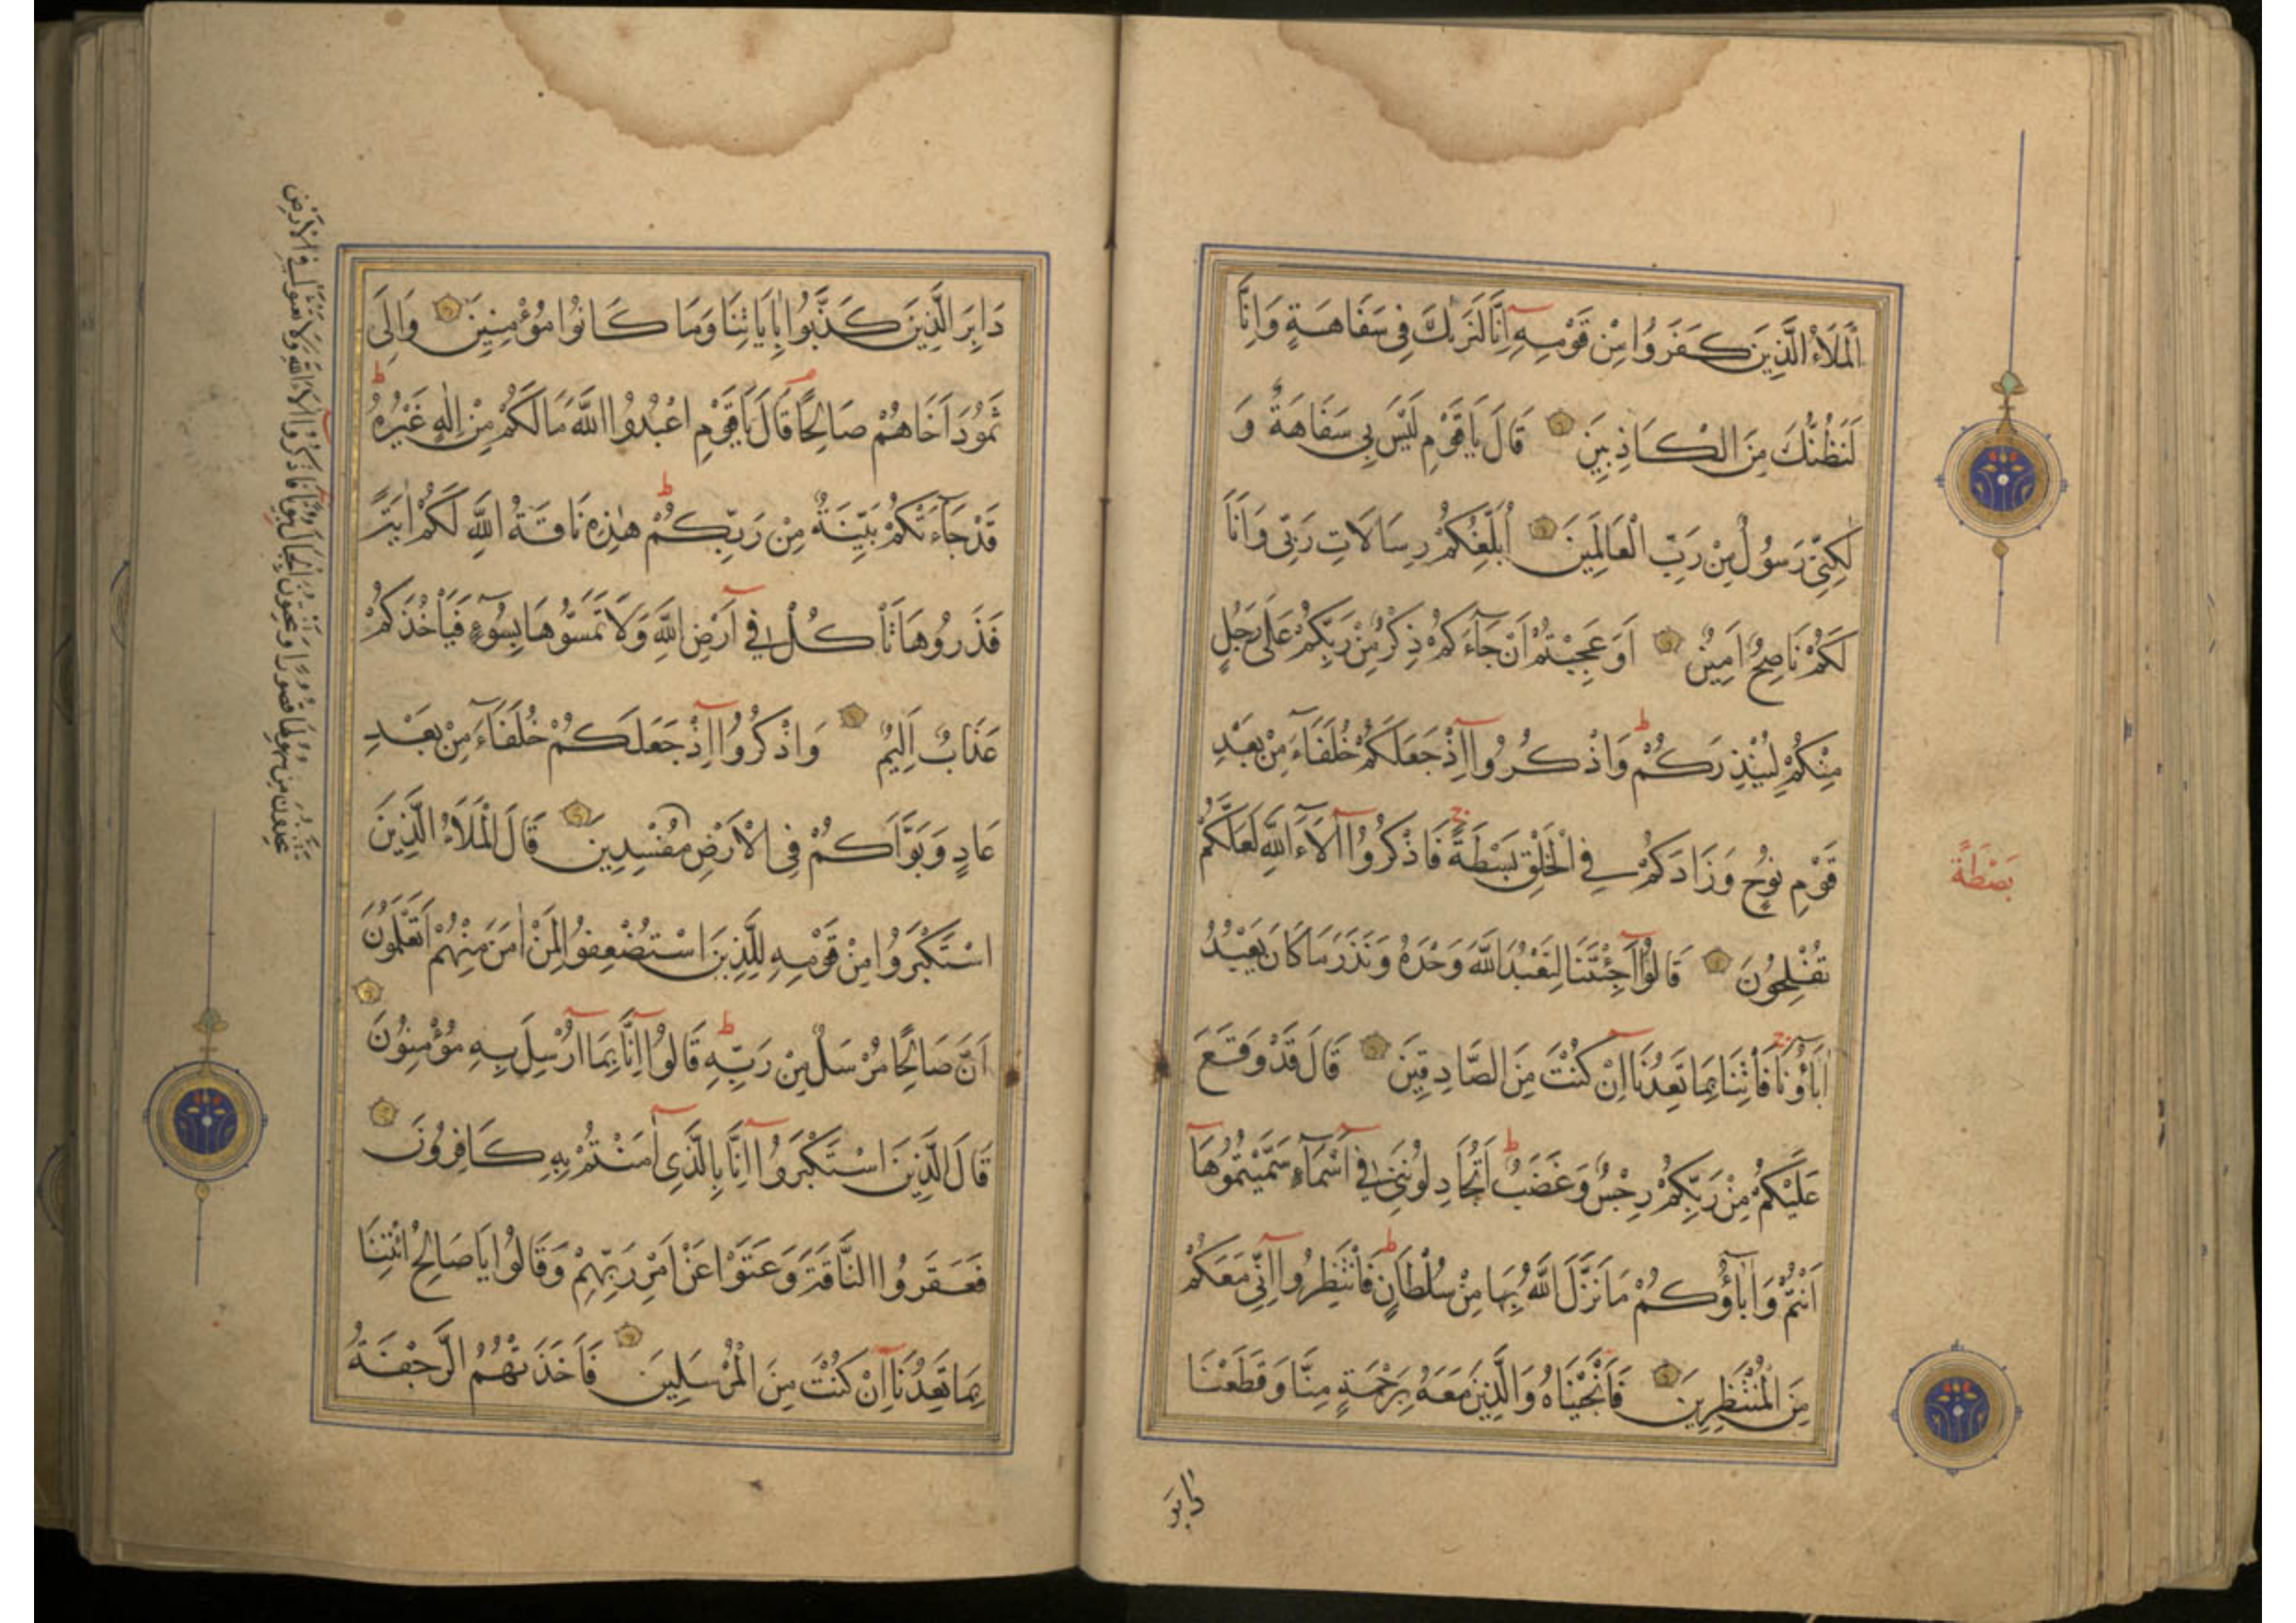 اَلْمَلَأُ الَّذِينَ كَفَرُوا مِنْ قَوْمِهِ اِنَّا لَنَرٰيكَ فِى سَفَاهَةٍ وَاِنَّا
لَنَظُنُّكَ مِنَ الْكَاذِبِينَ قَالَ يَا قَوْمِ لَيْسَ بِى سَفَاهَةٌ وَ
لٰكِنِّى رَسُولٌ مِنْ رَبِّ الْعَالَمِينَ اُبَلِّغُكُمْ رِسَالَاتِ رَبِّى وَاَنَا
لَكُمْ نَاصِحٌ اَمِينٌ اَوَعَجِبْتُمْ اَنْ جَآءَكُمْ ذِكْرٌ مِنْ رَبِّكُمْ عَلٰى رَجُلٍ
مِنْكُمْ لِيُنْذِرَكُمْ ط وَاذْكُرُوآ اِذْ جَعَلَكُمْ خُلَفَآءَ مِنْ بَعْدِ
قَوْمِ نُوحٍ وَزَادَكُمْ فِى الْخَلْقِ بَسْطَةً ج فَاذْكُرُوآ اٰلَآءَ اللّٰهِ لَعَلَّكُمْ
بَصْطَةً
تُفْلِحُونَ قَالُوآ اَجِئْتَنَا لِنَعْبُدَ اللّٰهَ وَحْدَهُ وَنَذَرَ مَا كَانَ يَعْبُدُ
اٰبَآؤُنَا ج فَأْتِنَا بِمَا تَعِدُنَآ اِنْ كُنْتَ مِنَ الصَّادِقِينَ قَالَ قَدْ وَقَعَ
عَلَيْكُمْ مِنْ رَبِّكُمْ رِجْسٌ وَغَضَبٌ ط اَتُجَادِلُونَنِى فِىٓ اَسْمَآءٍ سَمَّيْتُمُوهَآ
اَنْتُمْ وَاٰبَآؤُكُمْ مَا نَزَّلَ اللّٰهُ بِهَا مِنْ سُلْطَانٍ ط فَانْتَظِرُوآ اِنِّى مَعَكُمْ
مِنَ الْمُنْتَظِرِينَ فَاَنْجَيْنَاهُ وَالَّذِينَ مَعَهُ بِرَحْمَةٍ مِنَّا وَقَطَعْنَا
دَابِرَ
دَابِرَ الَّذِينَ كَذَّبُوا بِاٰيَاتِنَا وَمَا كَانُوا مُؤْمِنِينَ وَاِلٰى
ثَمُودَ اَخَاهُمْ صَالِحًا م قَالَ يَا قَوْمِ اعْبُدُوا اللّٰهَ مَا لَكُمْ مِنْ اِلٰهٍ غَيْرُهُ ط
قَدْ جَآءَتْكُمْ بَيِّنَةٌ مِنْ رَبِّكُمْ ط هٰذِهِ نَاقَةُ اللّٰهِ لَكُمْ اٰيَةً
فَذَرُوهَا تَأْكُلْ فِىٓ اَرْضِ اللّٰهِ وَلَا تَمَسُّوهَا بِسُوٓءٍ فَيَأْخُذَكُمْ
عَذَابٌ اَلِيمٌ وَاذْكُرُوآ اِذْ جَعَلَكُمْ خُلَفَآءَ مِنْ بَعْدِ
عَادٍ وَبَوَّاَكُمْ فِى الْاَرْضِ مُفْسِدِينَ قَالَ الْمَلَأُ الَّذِينَ
اسْتَكْبَرُوا مِنْ قَوْمِهِ لِلَّذِينَ اسْتُضْعِفُوا لِمَنْ اٰمَنَ مِنْهُمْ اَتَعْلَمُونَ
اَنَّ صَالِحًا مُرْسَلٌ مِنْ رَبِّهِ ط قَالُوآ اِنَّا بِمَآ اُرْسِلَ بِهِ مُؤْمِنُونَ
قَالَ الَّذِينَ اسْتَكْبَرُوآ اِنَّا بِالَّذِىٓ اٰمَنْتُمْ بِهِ كَافِرُونَ
فَعَقَرُوا النَّاقَةَ وَعَتَوْا عَنْ اَمْرِ رَبِّهِمْ وَقَالُوا يَا صَالِحُ ائْتِنَا
بِمَا تَعِدُنَآ اِنْ كُنْتَ مِنَ الْمُرْسَلِينَ فَاَخَذَتْهُمُ الرَّجْفَةُ
تَتَّخِذُونَ مِنْ سُهُولِهَا قُصُورًا وَتَنْحِتُونَ الْجِبَالَ بُيُوتًا فَاذْكُرُوآ اٰلَآءَ اللّٰهِ وَلَا تَعْثَوْا فِى الْاَرْضِ